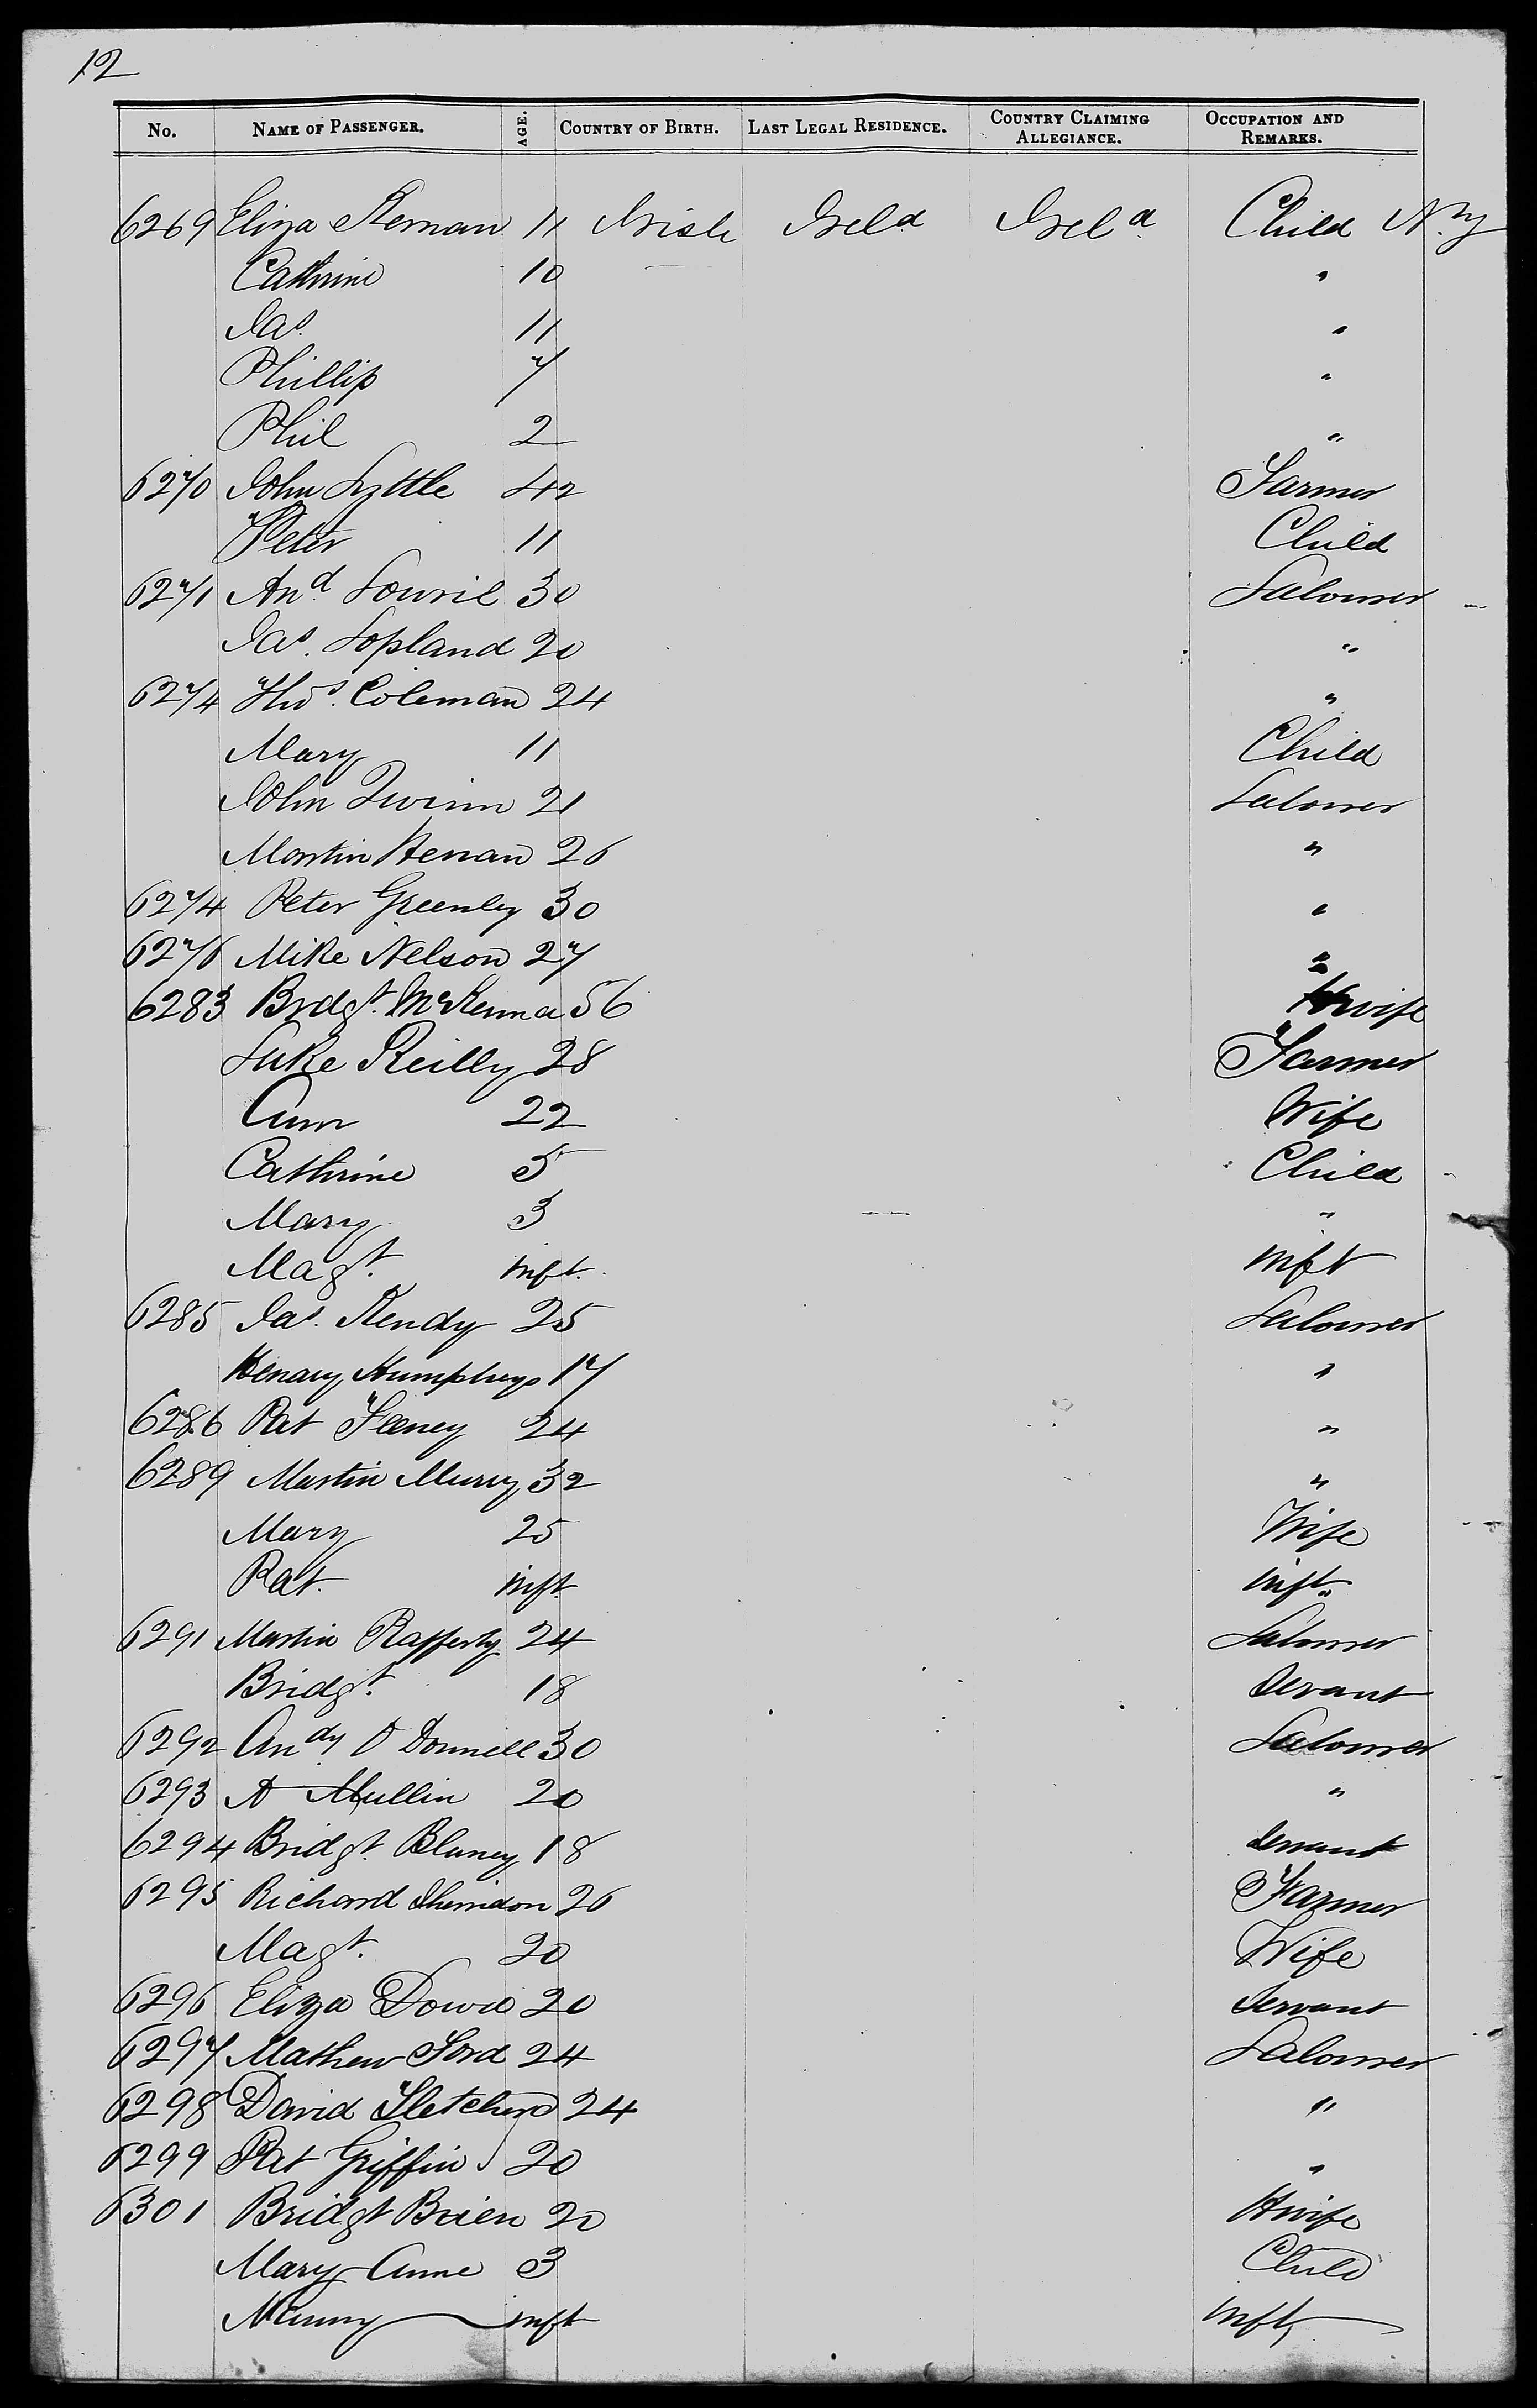 12
No. NAME OF PASSENGER. AGE. COUNTRY OF BIRTH. LAST LEGAL RESIDENCE. COUNTRY CLAIMING ALLEGIANCE. OCCUPATION AND REMARKS.
6269 Eliza Kernan 11 Irish Ireld Ireld Child N.Y
Cathrine 10 "
Jas. 11 "
Phillip 7 "
Phil 2 "
6270 John Lyttle 42 Farmer
Peter 11 Child
6271 And. 30 Labourer
Jas. Lopland 20 "
6274 Thos. Coleman 24 "
Mary 11 Child
John Quinn 21 Labourer
Martin Henan 26 "
6274 Peter Greenley 30 "
6276 Mike Nelson 27 "
6283 Brdgt. McKenna 56 Hwife
Luke Reilly 28 Farmer
Ann 22 Wife
Cathrine 5 Child
Mary 3 "
Magt. inft. inft
6285 Jas. Kendy 25 Labourer
Henary Humphreys 17 "
6286 Pat Feeney 24 "
6289 Martin Murry 32 "
Mary 25 Wife
Pat. inft. inft.
6291 Martin Rafferty 24 Labourer
Bridgt. 18 Servant
6292 Andy O Donnell 30 Labourer
6293 A Mullin 20 "
6294 Bridgt. Blaney 18 Servant
6295 Richard Sherridon 26 Farmer
Magt. 20 Wife
6296 Eliza Dowd 20 Servant
6297 Mathew Ford 24 Labourer
6298 David Fletcher 24 "
6299 Pat Griffin 20 "
6301 Bridgt Brien 20 Hwife
Mary Anne 3 Child
Nanny inft inft